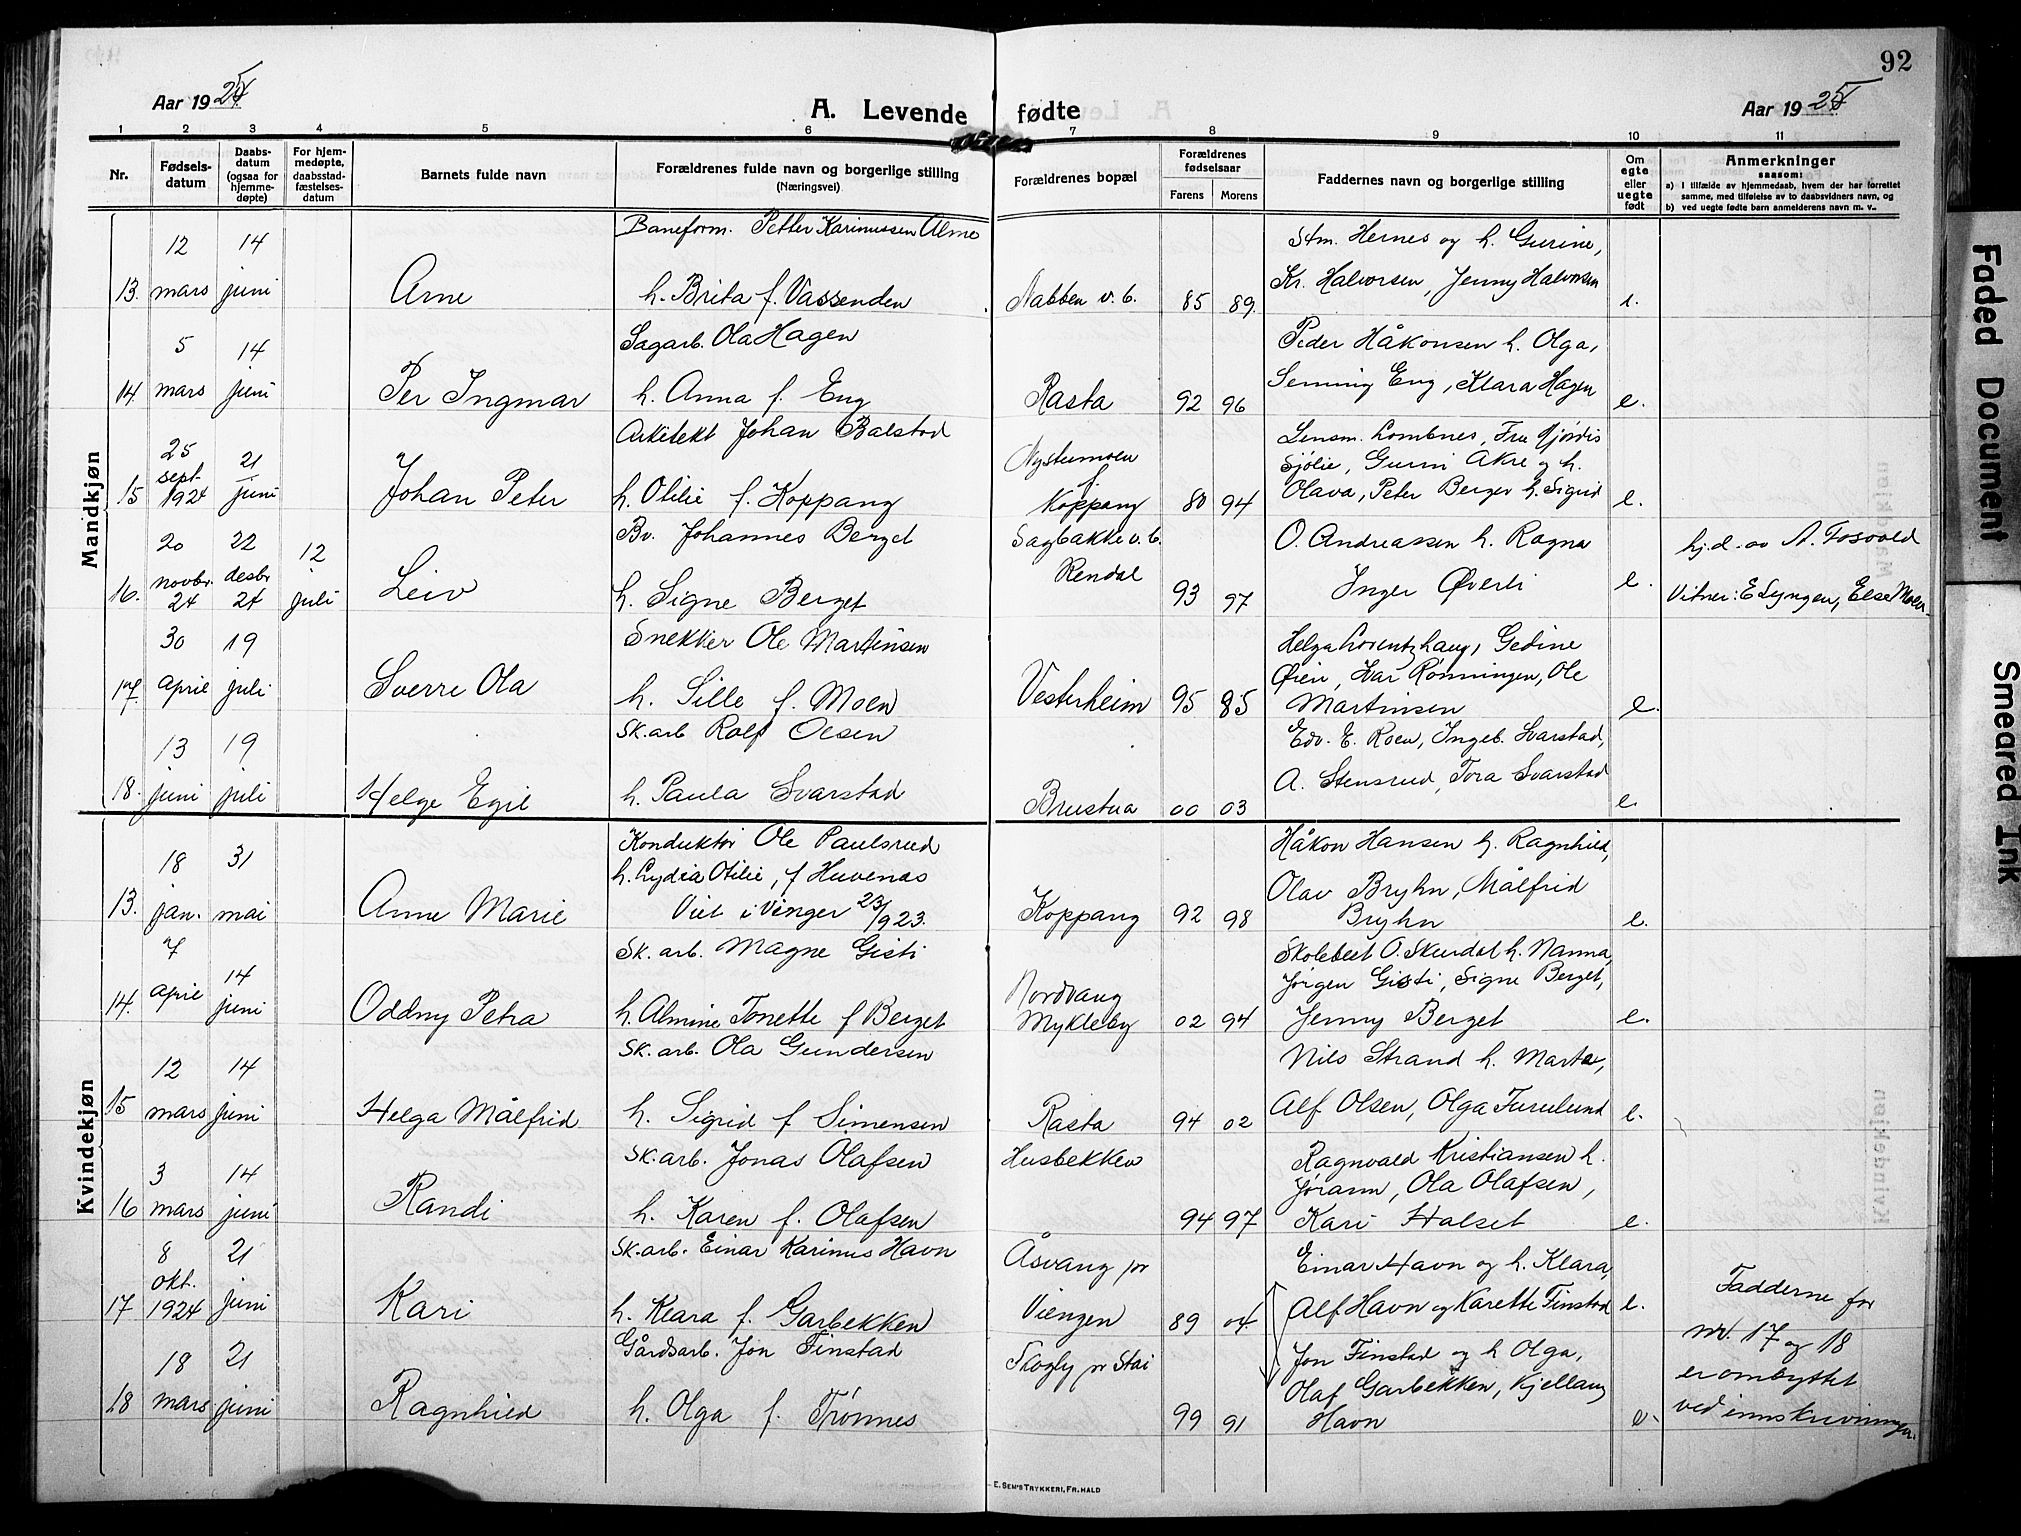 92
Aar 1925
A. Levende fødte
Aar 1925
1 2 3 4 5 6 7 8 9 10 11
Nr.
Fødsels-
datum
Daabs-
datum
(ogsaa for
hjemme-
døpte)
For hjem-
medøpte,
daabsstad-
fæstelses-
datum
Barnets fulde navn
Forældrenes fulde navn og borgerlige stilling
(Næringsvei)
Forældrenes bopæl
Forældrenes
fødselsaar
Farens Morens
Faddernes navn og borgerlige stilling
Om
egte
eller
uegte
født
Anmerkninger
saasom:
a) I tilfælde av hjemmedaab, hvem der har forrettet
samme, med tilføielse av to daabsvidners navn, og
b) ved uegte fødte barn anmelderens navn m. v..
Mandkjøn
Baneform. Petter Karinussen Alme
12 14
Stm. Hernes og h. Gurine,
13. mars juni Arne h. Brita f. Vassenden Nabben v. b. 85 89. Kr. Halvorsen, Jenny Halvorsen e.
5 14 Sagarb. Ola Hagen Peder Håkonsen h. Olga,
14. mars juni Per Ingmar h. Anna f. Eng Rasta 92 96 Semming Eng, Klara Hagen e.
Arkitekt Johan Balstad Lensm. Lombnes, Fru Hjørdis
25 Nystumoen Sjölie, Gurni Akre og h.
sept. 21
15 1924 juni Johan Peter h. Otilie f. Koppang Koppang 80 94 Olava, Peter Berger h. Sigrid e.
20 22 12 Bv. Johannes Berget Sagbakke v. b. O. Andreassen h. Ragna hj.d. av A. Fosvold
novbr. desbr. Rendal
16. 24 24 juli Leiv h. Signe Berget 93 97 Inger Øverli e. Vitner: E Lyngen, Else Moen
30 19 Snekker Ole Martinsen Helga Lorentzhaug, Gedine
17. april juli Sverre Ola h. Sille f. Moen Vesterheim 95 85 Øien, Ivar Rönningen, Ole
Martinsen e.
13 19 Sk. arb Rolf Olsen Edv. E. Roen, Ingeb. Svarstad,
18. juni juli Helge Egil h. Paula Svarstad Brustua 00 03 A. Stensrud, Tora Svarstad e.
Kvindekjøn
18 31 Konduktör Ole Paulsrud Håkon Hansen h. Ragnhild,
h. Lydia Otilie, f Huvenas Olav Bryhn, Målfrid
13. jan. mai Anne Marie Viet i Vinger 23/9 23. Koppang 92 98 Bryhn e.
7 Sk. arb. Magne Gisti Skolebest O. Skurdal h. Nanna,
14 Nordvang Jörgen Gisti, Signe Berget,
14. april juni Oddny Petra h. Almine Tonette f Berget Mykleby 02 94 Jenny Berget e.
12 14 Sk. arb. Ola Gundersen Nils Strand h. Marta,
15 mars juni Helga Målfrid h. Sigrid f Simensen Rasta 94 02 Alf Olsen, Olga Furulund e.
3 14 Sk. arb. Jonas Olafsen Husbekken Ragnvald Kristiansen h.
Jørann, Ola Olafsen,
16 mars juni Randi h. Karen f. Olafsen 94 97 Kari Halset e.
8 21 Sk. arb. Einar Karinus Havn Åsvang pr Einar Havn og h. Klara,
okt.
17 1924 juni Kari h. Klara f. Garbekken Viengen 89 04. Alf Havn og Karette Finstad e.
Fadderne for
nr. 17 og 18
er ombyttet
ved innskrivningen.
18 21 Gårdsarb. Jon Finstad Skogly pr Stai Jon Finstad og h Olga,
Olaf Garbekken, Kjellaug
18 mars juni Ragnhild h. Olga f. Trönnes 99 91 Havn e.
E. SEM'S TRYKKERI, FR.HALD
Faded Document
Smeared Ink